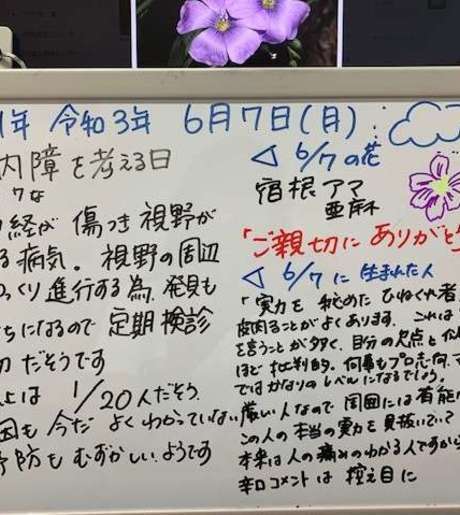 1年 令和3年 6月7日(月)
内障を考える日
経が 傷つき 視野が
る病気。視野の周辺
っくり進行する為、発見も
ちになるので 定期検診
切だそうです
上は 1/20人だそう。
因も今だ よくわかっていない
予防も むずかしいようです
◁ 6/7の花
宿根アマ
亜麻
「ご親切に ありがと
◁ 6/7に 生まれた人
「実力を 秘めた ひねくれ者
皮肉ることが よくあります。これは
を言うことが多く、自分の欠点と似
ほど 批判的。何事もプロ志向。
ではかなりの レベルになるでしょう。
厳しい人なので 周囲には 有能
この人の本当の実力を見抜いてい
本来は人の痛みのわかる人ですから
辛口コメントは 控え目に